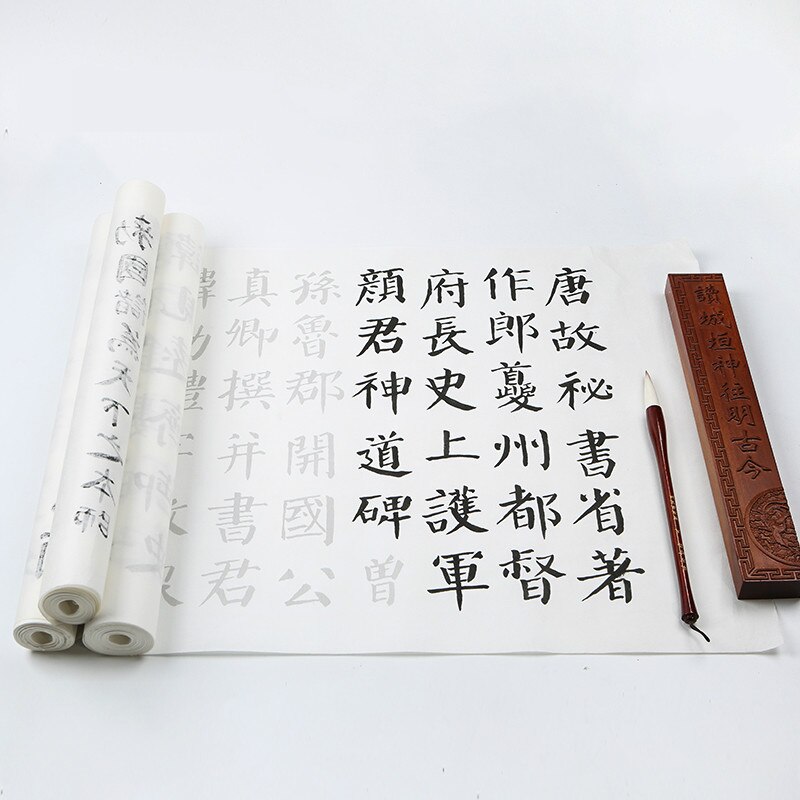 唐故祕書省著
作郎夔州都督
府長史上護軍
顏君神道碑曾
孫魯郡開國公
真卿撰并書君
禮
讀城垣神往明古今
勑國儲為天下之本師